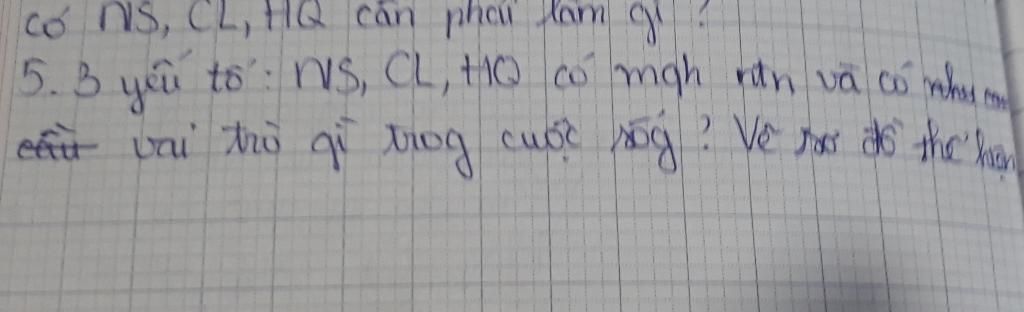 có NS, CL, HQ cần phải làm gì?
5. 3 yếu tố: NS, CL, HQ có mqh ntn và có
vai trò gì trog cuộc sốg? Vẽ sơ đồ thể hiện